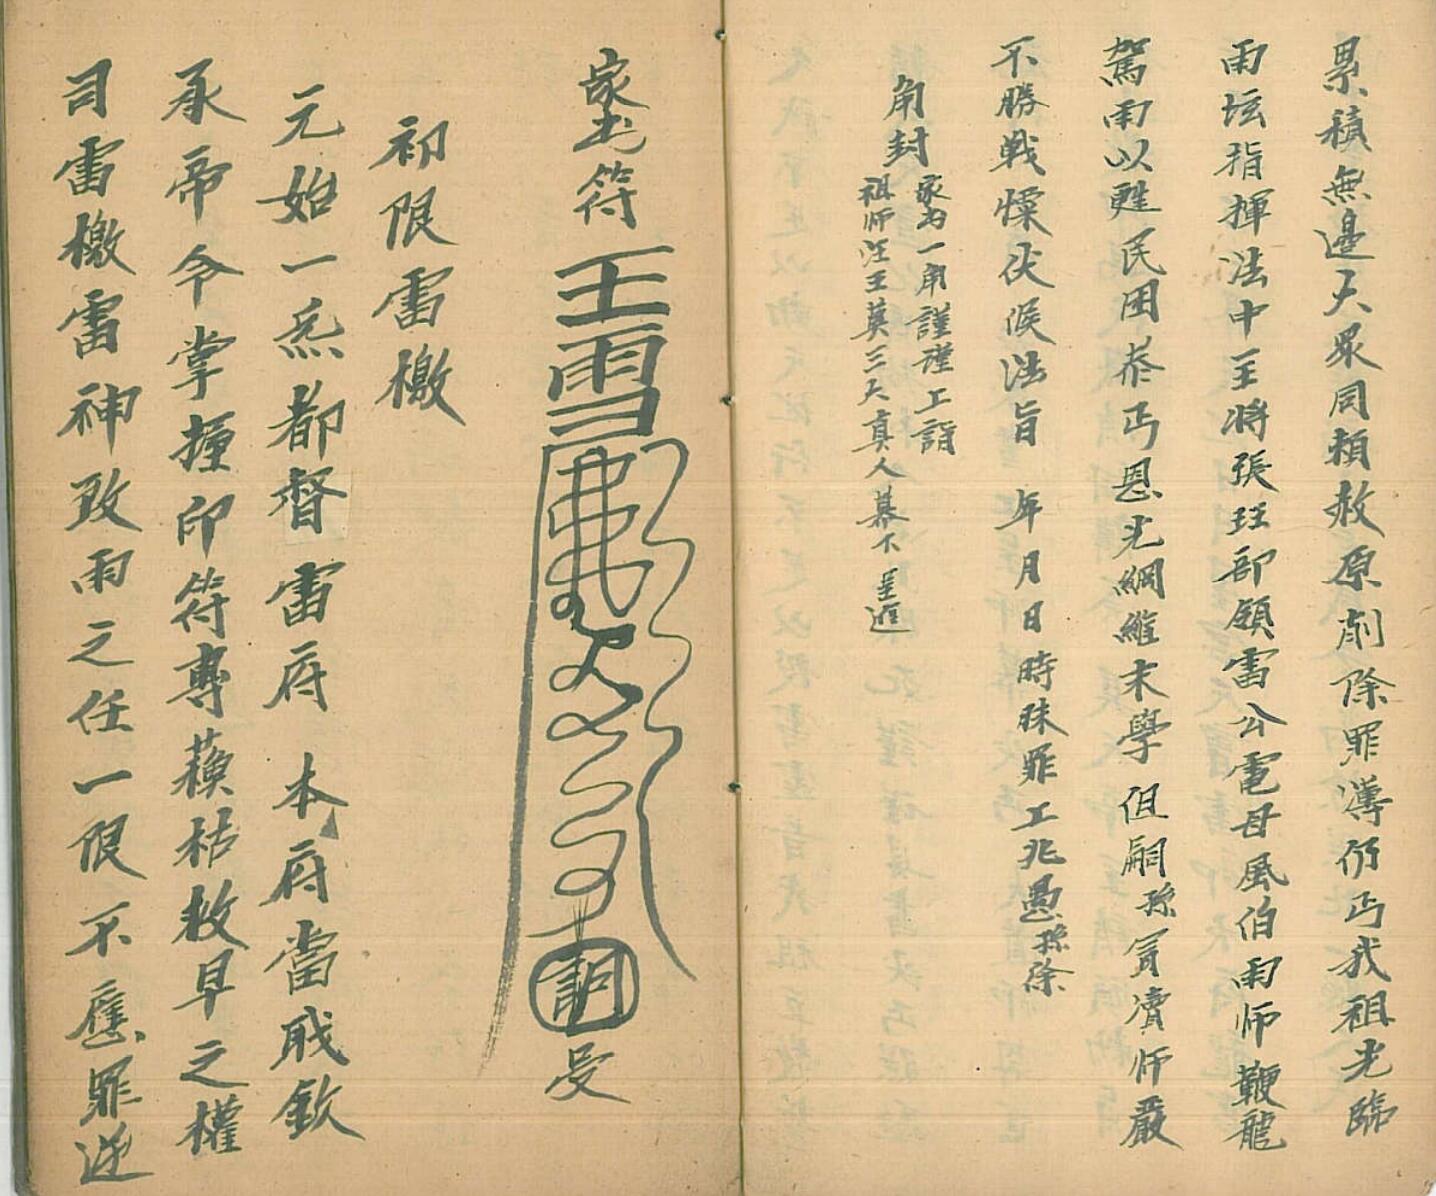 累積無邊大眾同賴赦原削除罪愆仍丐我祖光臨
雨坛指揮法中主將張珏部領雷公電母風伯雨师鞭龍
駕雨以甦民困恭丐恩光綱維末學但嗣孫冒瀆师嚴
不勝戰慄伏候法旨 年月日時昧罪工兆愚孫徐
角封
家书一角謹謹上詣
祖师汪王莫三大真人慕下 呈進
家书符
詞
受
初限雷檄
元始一炁都督雷府 本府當職欽
承帝令掌握印符專蘓枯救旱之權
司雷檄雷神致雨之任一限不應罪逆